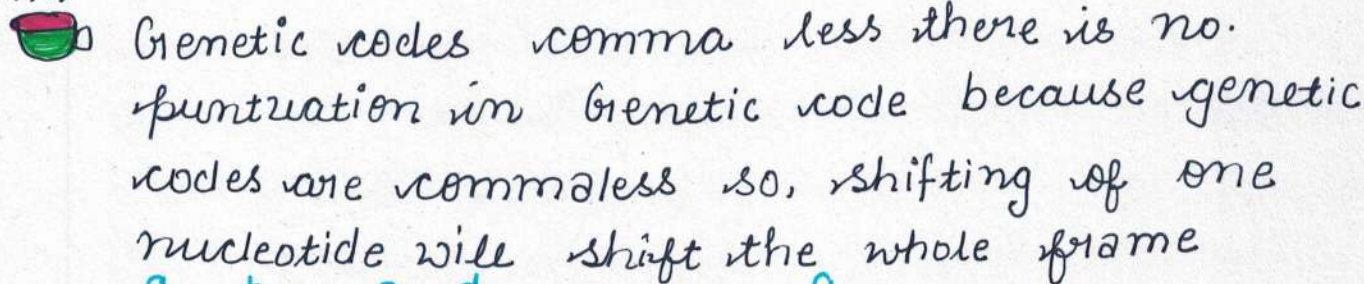 Genetic codes comma less there is no.
puntuation in Genetic code because genetic
codes are commaless so, shifting of one
nucleotide will shift the whole frame